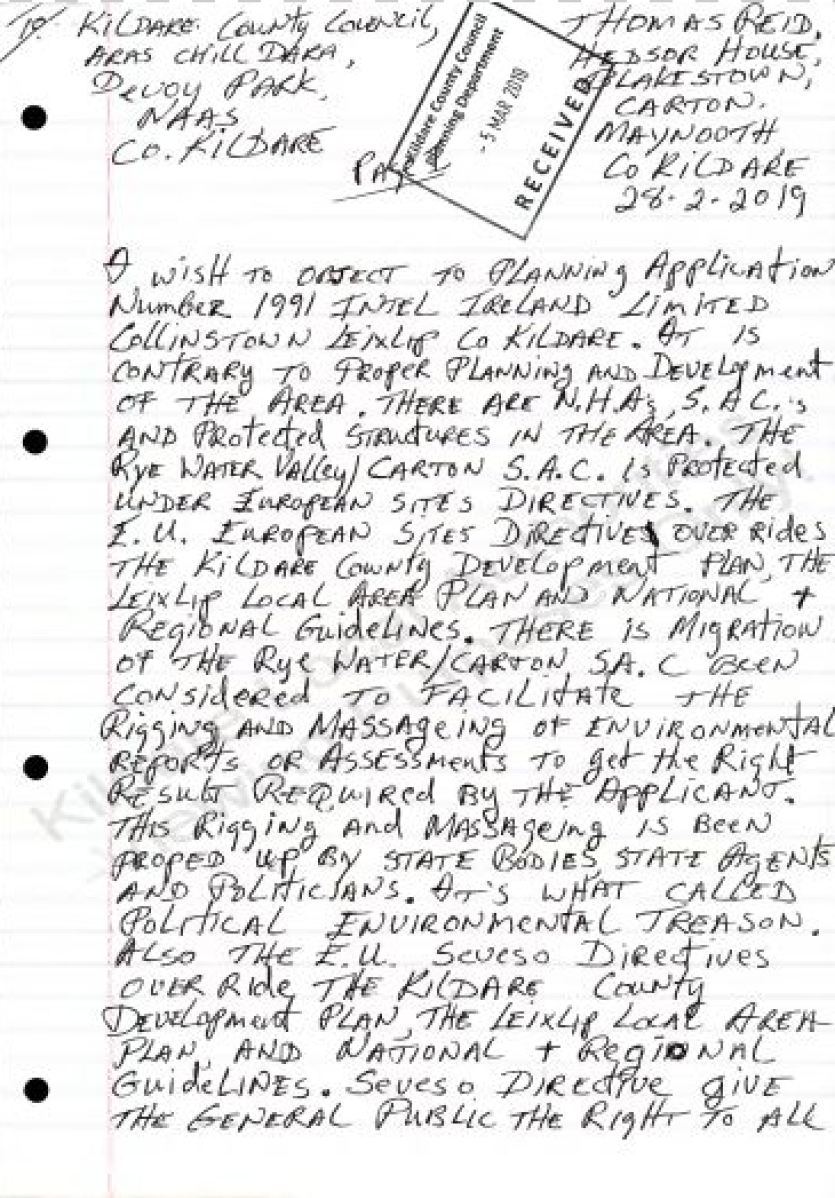 To/ KILDARE COUNTY COUNCIL,
ARAS CHILL DARA,
DEVOY PARK,
NAAS
CO. KILDARE
PAGE 1
Kildare County Council
Planning Department
- 5 MAR 2019
RECEIVED
THOMAS REID,
HEDSOR HOUSE,
BLAKESTOWN,
CARTON.
MAYNOOTH
CO KILDARE
28-2-2019
I WISH TO OBJECT TO PLANNING APPLICATION
NUMBER 1991 INTEL IRELAND LIMITED
COLLINSTOWN LEIXLIP CO KILDARE. IT IS
CONTRARY TO PROPER PLANNING AND DEVELOPMENT
OF THE AREA. THERE ARE N.H.A's, S.A.C.'s
AND PROTECTED STRUCTURES IN THE AREA. THE
RYE WATER VALLEY/CARTON S.A.C. IS PROTECTED
UNDER EUROPEAN SITES DIRECTIVES. THE
E.U. EUROPEAN SITES DIRECTIVES OVER RIDES
THE KILDARE COUNTY DEVELOPMENT PLAN, THE
LEIXLIP LOCAL AREA PLAN AND NATIONAL +
REGIONAL GUIDELINES. THERE IS MIGRATION
OF THE RYE WATER/CARTON SA.C BEEN
CONSIDERED TO FACILITATE THE
RIGGING AND MASSAGEING OF ENVIRONMENTAL
REPORTS OR ASSESSMENTS TO GET THE RIGHT
RESULT REQUIRED BY THE APPLICANT.
THIS RIGGING AND MASSAGEING IS BEEN
PROPED UP BY STATE BODIES, STATE AGENTS
AND POLITICIANS. IT'S WHAT CALLED
POLITICAL ENVIRONMENTAL TREASON.
ALSO THE E.U. SEVESO DIRECTIVES
OVER RIDE THE KILDARE COUNTY
DEVELOPMENT PLAN, THE LEIXLIP LOCAL AREA
PLAN, AND NATIONAL + REGIONAL
GUIDELINES. SEVESO DIRECTIVE GIVE
THE GENERAL PUBLIC THE RIGHT TO ALL